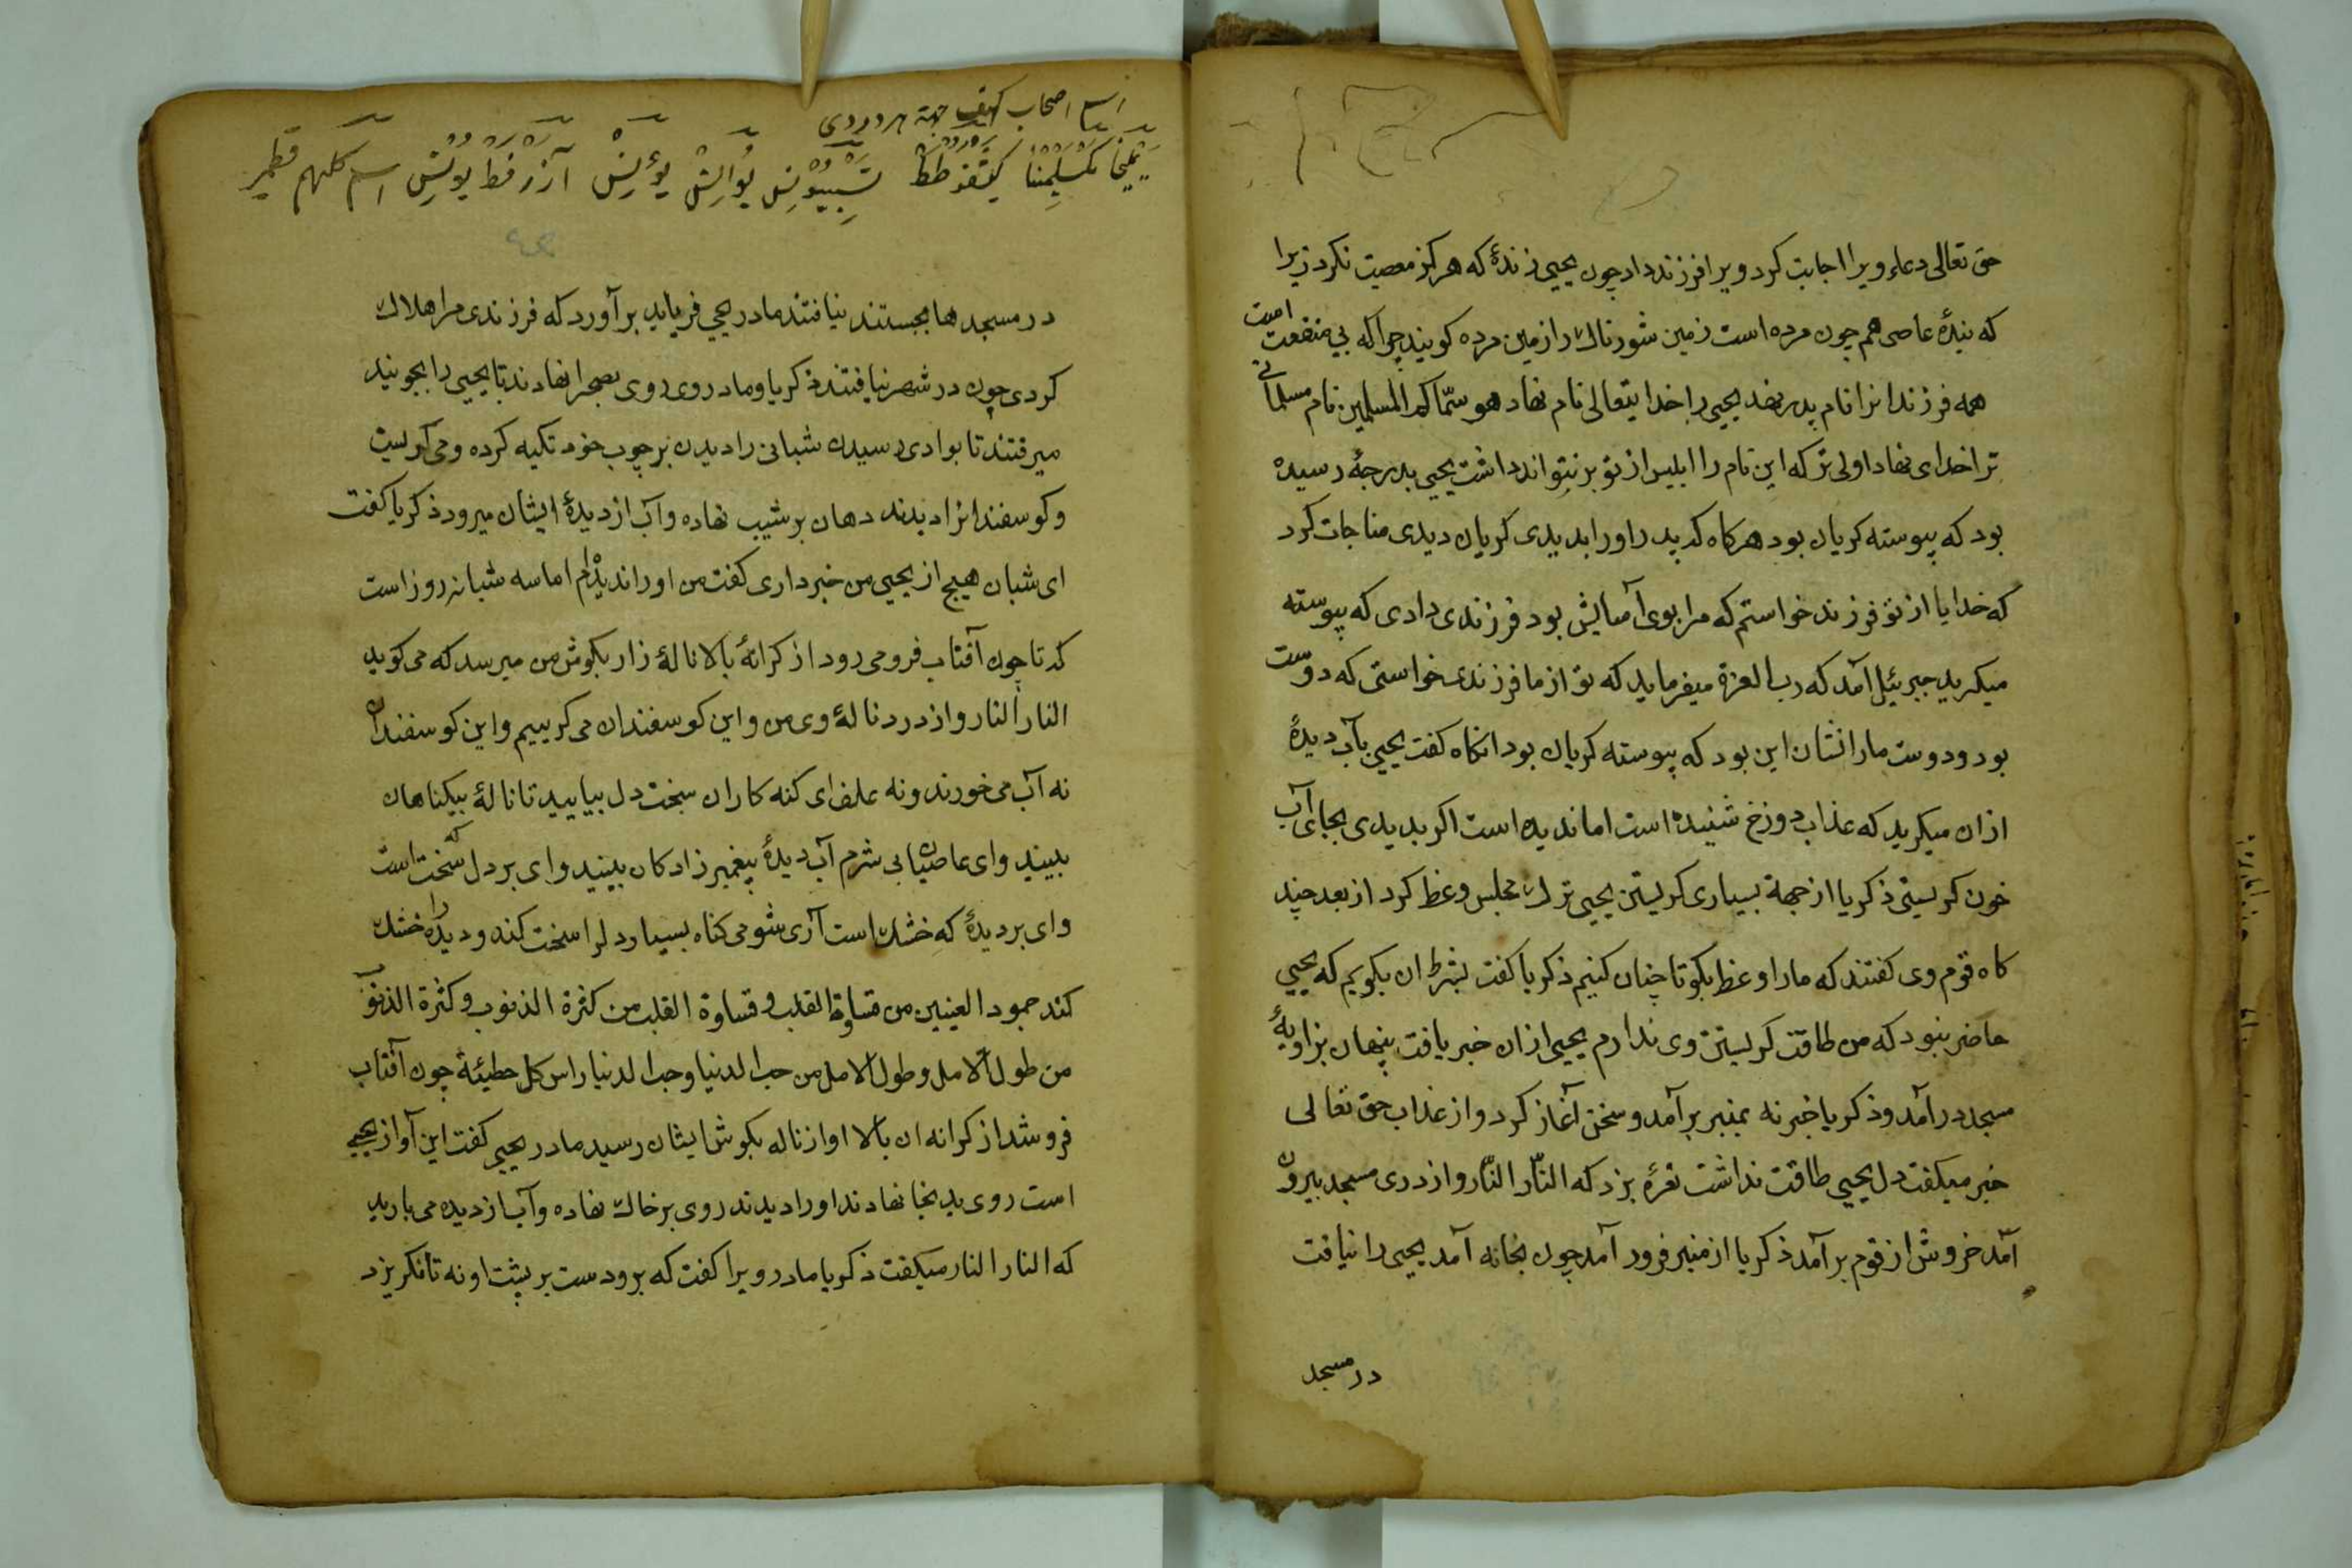 حق تعالی دعاء ویرا اجابت کرد ویرا فرزند داد چون یحیی زندهٔ که هرکز معصیت نکرد زیرا
که بندهٔ عاصی هم چون مرده است زمین شورناک را زمین مرده کویند چراکه بی منفعت است
همه فرزندانرا نام پدر نهد یحیی را خدایتعالی نام نهاد هو سمّاکم المسلمین نام مسلمانی
ترا خدای نهاد اولی تر که این نام را ابلیس از تو بر نتواند داشت یحیی بدرجهٔ رسیده
بود که پیوسته کریان بود هرکاه که پدر اورا بدیدی کریان دیدی مناجات کرد
که خدایا از تو فرزند خواستم که مرا بوی آسایش بود فرزندی دادی که پیوسته
میکرید جبرئیل آمد که رب العزة میفرماید که تو از ما فرزندی خواستی که دوست
بود و دوست مارا نشان این بود که پیوسته کریان بود انکاه کفت یحیی بآب دیدهٔ
ازان میکرید که عذاب دوزخ شنیده است اما ندیده است اکر بدیدی بجای آب
خون کریستی ذکریا از جهة بسیاری کریستن یحیی ترک مجلس وعظ کرد از بعد چند
کاه قوم وی کفتند که مارا وعظ بکو تا چنان کنیم ذکریا کفت بشرط ان بکویم که یحیی
حاضر نبود که من طاقت کریستن وی ندارم یحیی ازان خبر یافت پنهان بزاویهٔ
مسجد درآمد و ذکریا خبر نه بمنبر برآمد و سخن آغاز کرد و از عذاب حق تعالی
خبر میکفت دل یحیی طاقت نداشت نعرهٔ بزد که النّار النّار و از دری مسجد بیرون
آمد خروش از قوم برآمد ذکریا از منبر فرود آمد چون بخانه آمد یحیی را نیافت
در مسجد
اصحاب کهف جهة
یملیخا مکسلمینا اسم کلبهم قطمیر
در مسجدها بجستند نیافتند مادر یحیی فریاد برآورد که فرزندی مرا هلاک
کردی چون در شهر نیافتند ذکریا و مادر وی روی بصحرا نهادند تا یحیی را بجویند
میرفتند تا بوادی رسیدن شبانی را دیدن بر چوب خود تکیه کرده و می کریست
و کوسفندانرا دیدند دهان بر شیب نهاده و آب از دیدهٔ ایشان میرود ذکریا کفت
ای شبان هیچ از یحیی من خبر داری کفت من اورا ندیدام اما سه شبانه روز است
که تا چون آفتاب فرو می رود از کرانهٔ بالا نالهٔ زار بکوش من میرسد که می کوید
النار النار و از درد نالهٔ وی من و این کوسفندان می کرییم و این کوسفندان
نه آب می خورند و نه علف ای کنه کاران سخت دل بیایید تا نالهٔ بیکناهان
ببینید وای عاصیان بی شرم آب دیدهٔ پیغمبر زادکان ببینید وای بر دل که سخت است
وای بر دیدهٔ که خشک است آری شومی کناه بسیار دلرا سخت کند و دیده را خشک
کند جمود العینین من قساوة القلب و قساوة القلب من کثرة الذنوب و کثرة الذنوب
من طول الامل و طول الامل من حب الدنیا و حب الدنیا راس کل خطیئة چون آفتاب
فرو شد از کرانه ان بالا اواز ناله بکوش ایشان رسید مادر یحیی کفت این آواز یحیی
است روی بدینجا نهادند اورا دیدند روی بر خاک نهاده و آب از دیده می بارید
که النار النار میکفت ذکریا مادر ویرا کفت که برو دست بر پشت او نه تا نکریزد